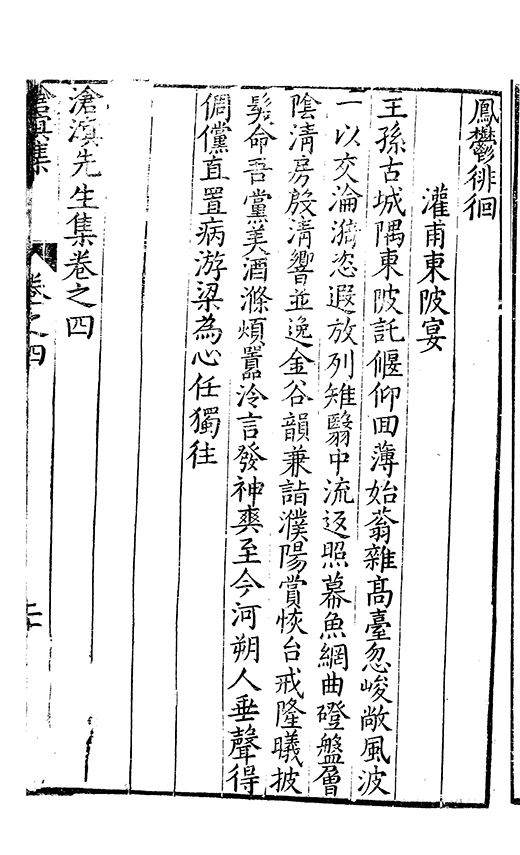 鳳鬱徘徊
灌甫東陂宴
王孫古城隅東陂託偃仰回薄始蓊雜高臺忽峻敞風波
一以交淪漪恣遐放列雉翳中流返照幕魚網曲磴盤層
陰清房發清響並逸金谷韻兼詣濮陽賞恢台戒隆曦披
髣命吾黨美酒滌煩囂泠言發神爽至今河朔人垂聲得
倜儻直置病游梁為心任獨往
滄溟先生集卷之四
滄溟集
卷之四
二十